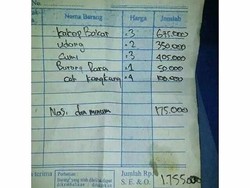 Nama Barang Harga Jumlah
kakap Bakar 3 675.000
udang 2 350.000
Cumi 3 405.000
Burung Dara 1 50.000
cah kangkung 4 100.000
Nasi dan minum 175.000
Jumlah Rp. 1.755.000
S. E. & O.